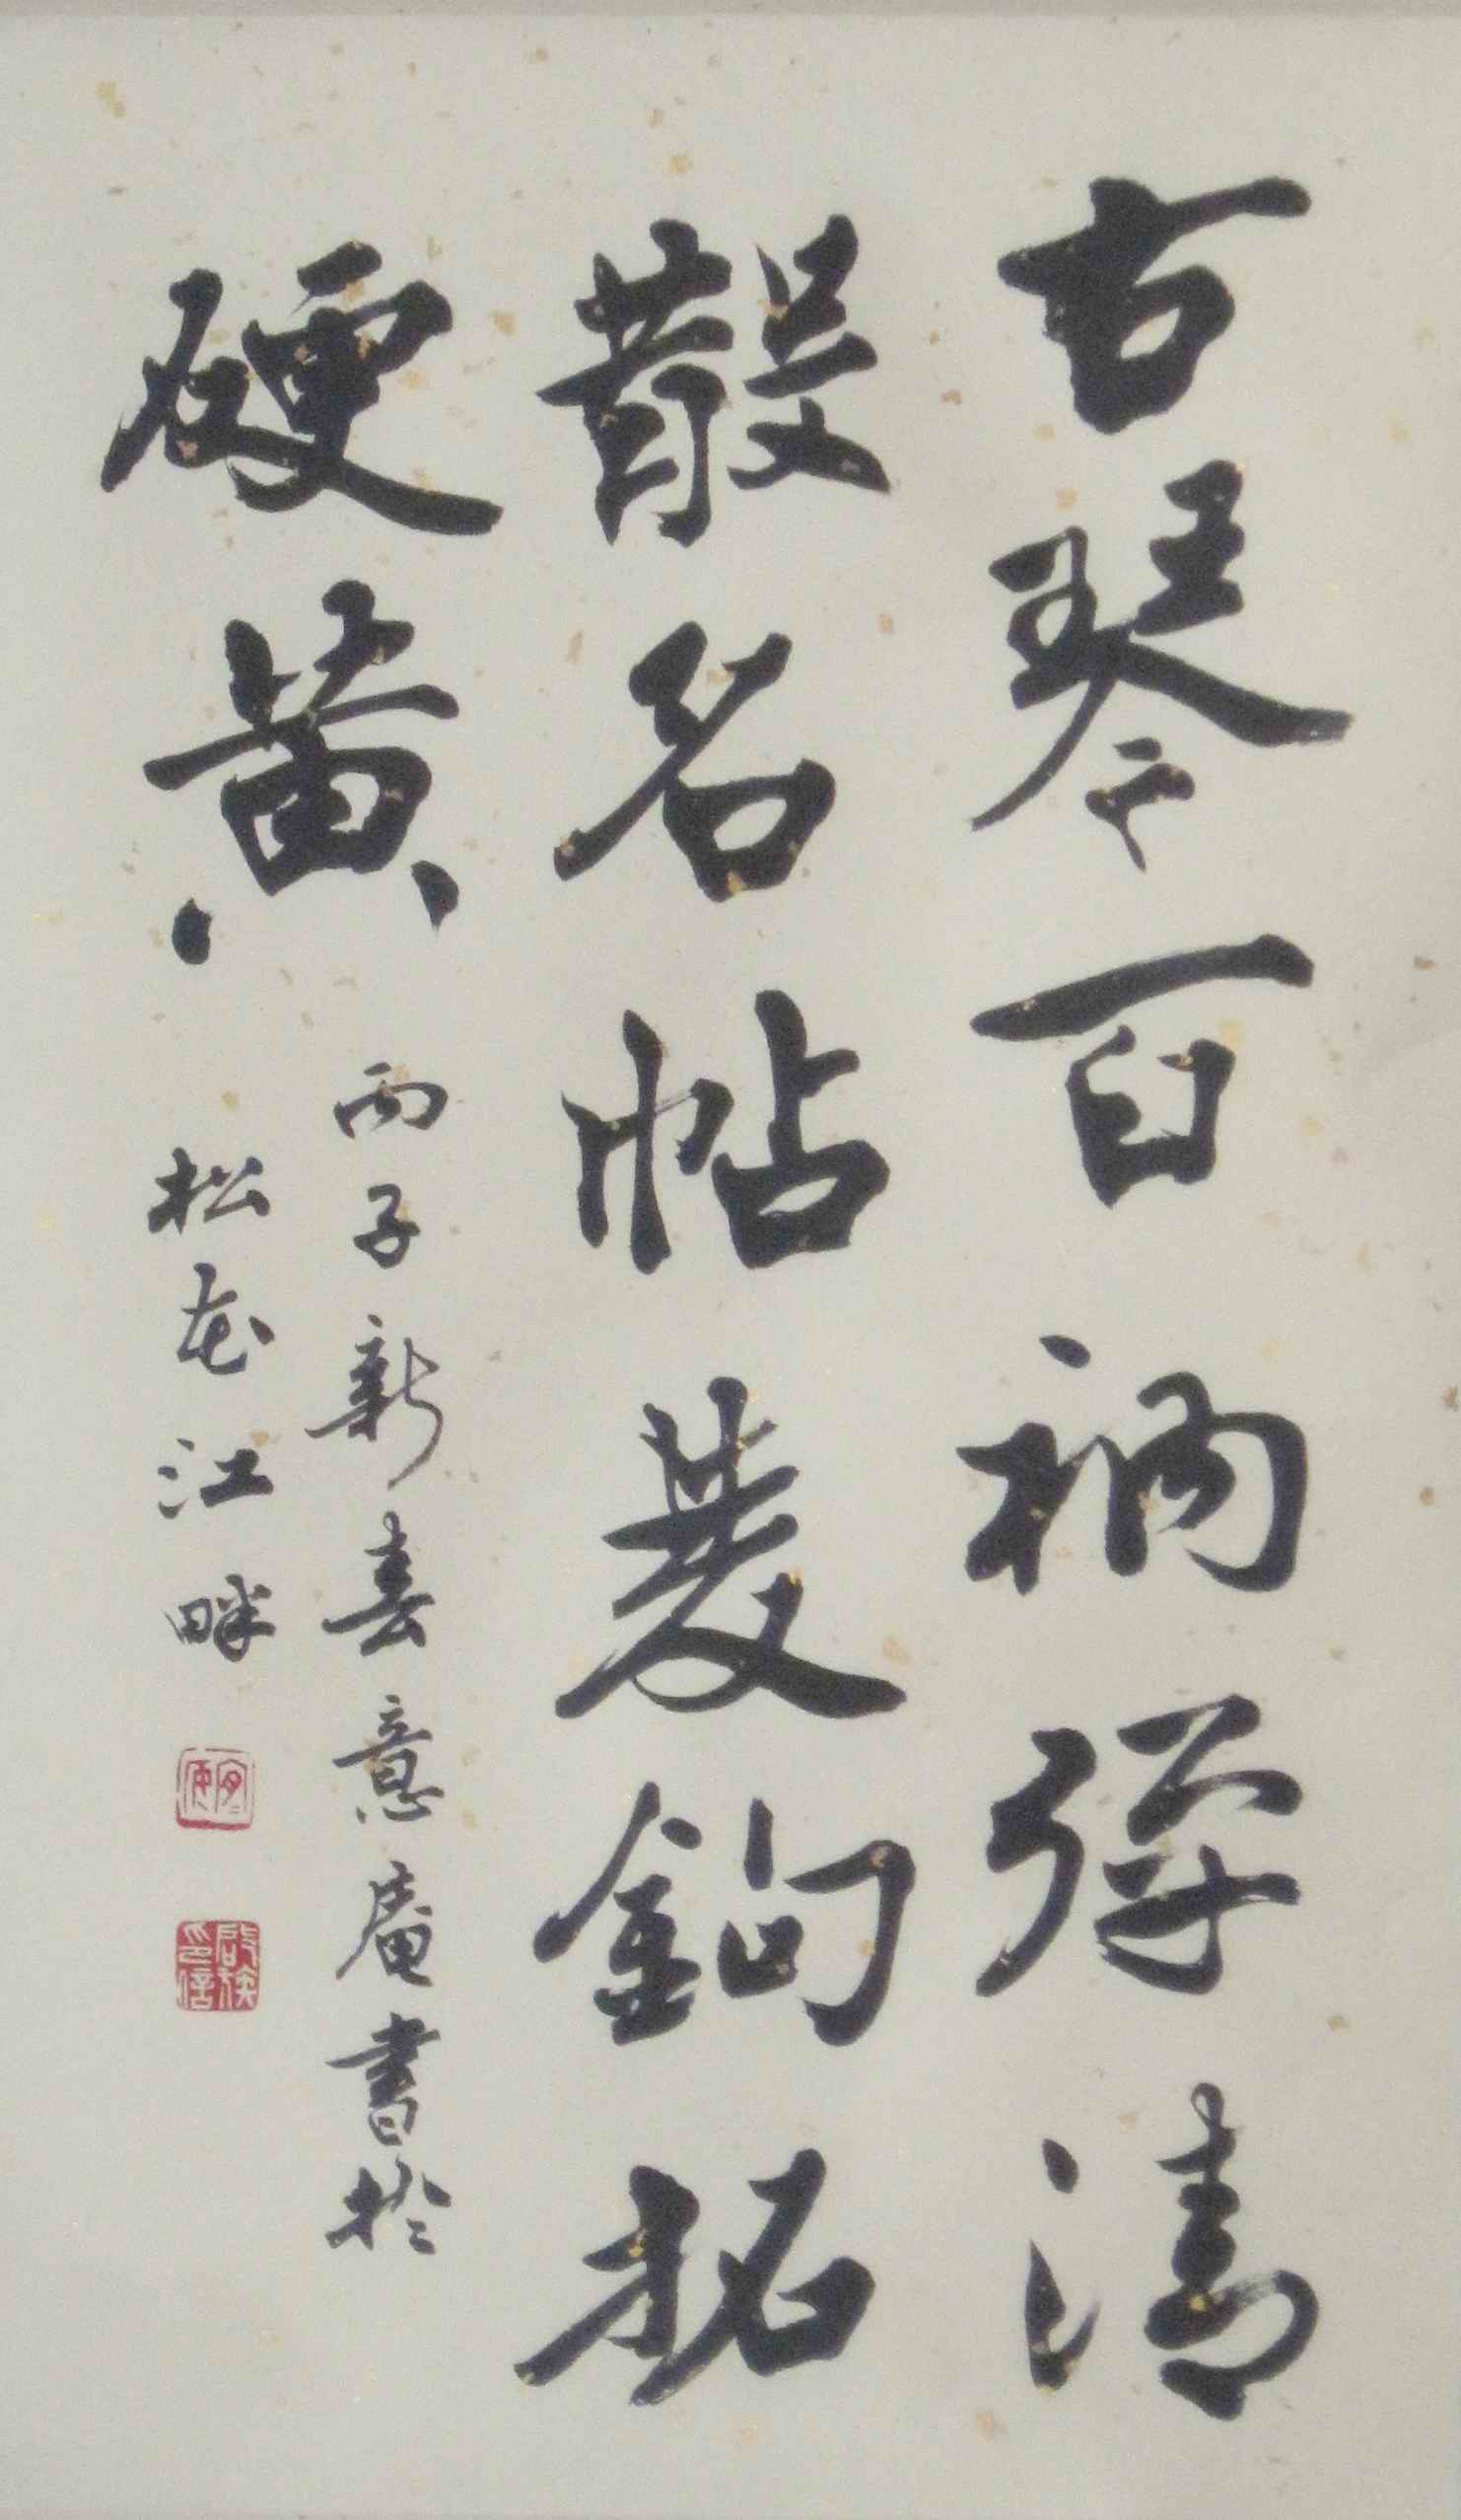 古琴百衲彈清
散名帖雙鉤拓
硬黃
丙子新春意庵書於
松花江畔